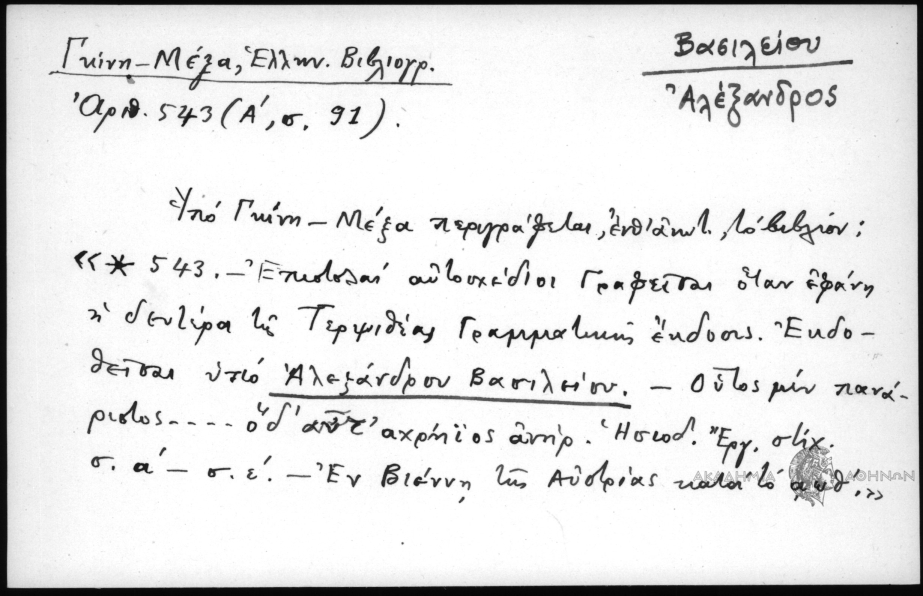 Γκίνη – Μέξα, Ἑλλην. Βιβλιογρ.
Ἀριθ. 543 (Α΄, σ. 91).
Βασιλείου
Ἀλέξανδρος
Ὑπό Γκίνη – Μέξα περιγράφεται, , τό βιβλίον:
«* 543. – Ἐπιστολαί αὐτοσχέδιοι Γραφεῖσαι ὅταν ἐφάνη
ἡ δευτέρα τῆς Τερψιθέας Γραμματικῆς ἔκδοσις. Ἐκδο-
θεῖσαι ὑπό Ἀλεξάνδρου Βασιλείου. – Οὗτος μέν πανά-
ριστος---- ὅ δ' αὖτ' ἀχρήϊος ἀνήρ. Ἡσιοδ. Ἔργ. στίχ.
σ. α΄ – σ. ε΄. – Ἐν Βιέννῃ τῆς Αὐστρίας κατά τό αωθ΄.»
ΑΚΑΔΗΜΙΑ ΑΘΗΝΩΝ